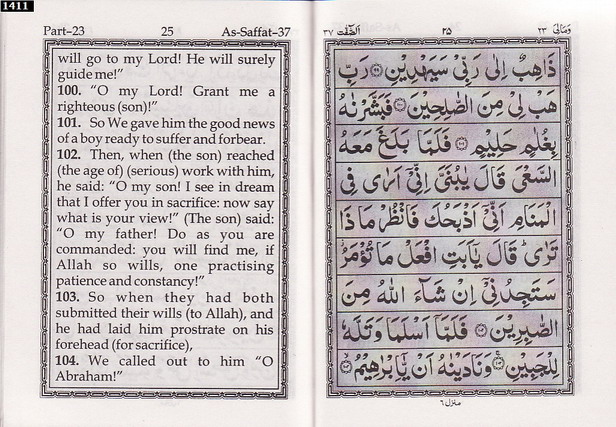 1411
Part–23 25 As-Saffat–37
will go to my Lord! He will surely
guide me!”
100. “O my Lord! Grant me a
righteous (son)!”
101. So We gave him the good news
of a boy ready to suffer and forbear.
102. Then, when (the son) reached
(the age of) (serious) work with him,
he said: “O my son! I see in dream
that I offer you in sacrifice: now say
what is your view!” (The son) said:
“O my father! Do as you are
commanded: you will find me, if
Allah so wills, one practising
patience and constancy!”
103. So when they had both
submitted their wills (to Allah), and
he had laid him prostrate on his
forehead (for sacrifice),
104. We called out to him “O
Abraham!”
وَمَالِیَ ۲۳ ۲۵ الصّٰفّٰت ۳۷
ذَاهِبٌ اِلٰى رَبِّیْ سَيَهْدِيْنِ ۝۹۹ رَبِّ
هَبْ لِیْ مِنَ الصّٰلِحِيْنَ ۝۱۰۰ فَبَشَّرْنٰهُ
بِغُلٰمٍ حَلِيْمٍ ۝۱۰۱ فَلَمَّا بَلَغَ مَعَهُ
السَّعْیَ قَالَ يٰبُنَیَّ اِنِّیْۤ اَرٰى فِی
الْمَنَامِ اَنِّیْۤ اَذْبَحُكَ فَانْظُرْ مَاذَا
تَرٰى ؕ قَالَ يٰۤاَبَتِ افْعَلْ مَا تُؤْمَرُ ؗ
سَتَجِدُنِیْۤ اِنْ شَآءَ اللّٰهُ مِنَ
الصّٰبِرِيْنَ ۝۱۰۲ فَلَمَّاۤ اَسْلَمَا وَتَلَّهٗ
لِلْجَبِيْنِ ۝۱۰۳ وَنَادَيْنٰهُ اَنْ يّٰۤاِبْرٰهِيْمُ ۝۱۰۴
منزل ۶